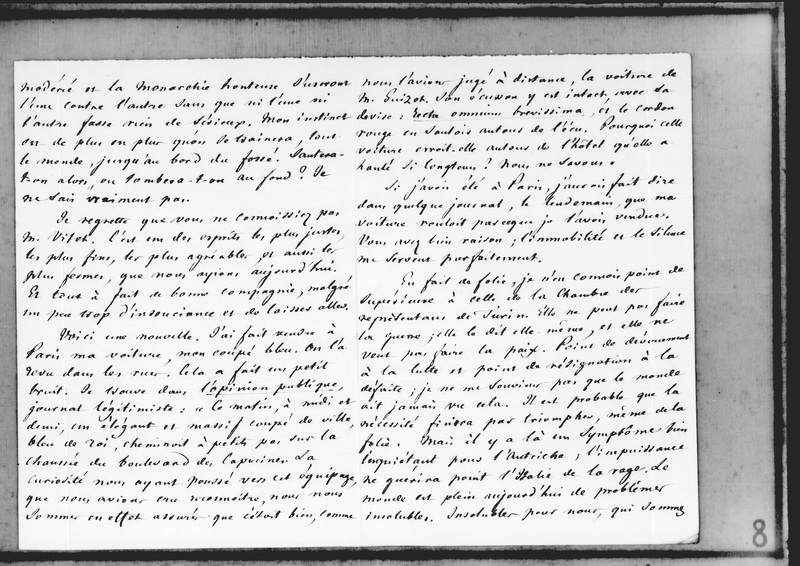 modérée et la Monarchie honteuse s'useront
l'une contre l'autre sans que ni l'une ni
l'autre fasse rien de sérieux. Mon instinct
est de plus en plus qu'on se traînera, tout
le monde, jusqu'au bord du fossé. Sautera-
t-on alors, ou tombera-t-on au fond? Je
ne sais vraiment pas.
Je regrette que vous ne connoissiez pas
M. Vitet. C'est un des esprits les plus justes,
les plus fins, les plus agréables, et aussi les
plus fermes, que nous ayions aujourd'hui.
Et tout à fait de bonne compagnie, malgré
un peu trop d'insouciance et de laisser aller.
Voici une nouvelle. J'ai fait vendre à
Paris ma voiture, mon coupé bleu. On l'a
revu dans les rues. Cela a fait un petit
bruit. Je trouve dans l'opinion publique,
journal légitimiste: "Ce matin, à midi et
demi, un élégant et massif coupé de ville,
bleu de roi, cheminoit à petits pas sur la
chaussée du boulevard des Capucines. La
curiosité nous ayant poussé vers cet équipage,
que nous avions cru reconnoitre, nous nous
sommes en effet assurés que c'étoit bien, comme
nous l'avions jugé à distance, la voiture de
M. Guizot. Son écusson y est intact, avec sa
devise: recta omnium brevissima, et le cordon
rouge en sautois autour de l'écu. Pourquoi cette
voiture erroit-elle autour de l'hôtel qu'elle a
hanté si longtems? Nous ne savons.
Si j'avois été à Paris, j'aurois fait dire
dans quelque journal, le lendemain, que ma
voiture rouloit parceque je l'avois vendue.
Vous avez bien raison; l'immobilité et le silence
me servent parfaitement.
En fait de folie, je n'en connois point de
supérieure à celle de la Chambre des
représentans de Turin. Elle ne peut pas faire
la guerre; elle le dit elle même, et elle ne
veut pas faire la paix. Point de dévouement
à la lutte et point de résignation à la
défaite; je ne me souviens pas que le monde
ait jamais vu cela. Il est probable que la
nécessité finira par triompher, même de la
folie. Mais il y a là un symptôme bien
inquiétant pour l'Autriche; l'impuissance
ne guérira point l'Italie de la rage. Le
monde est plein aujourd'hui de problèmes
insolubles. Insolubles pour nous, qui sommes
8